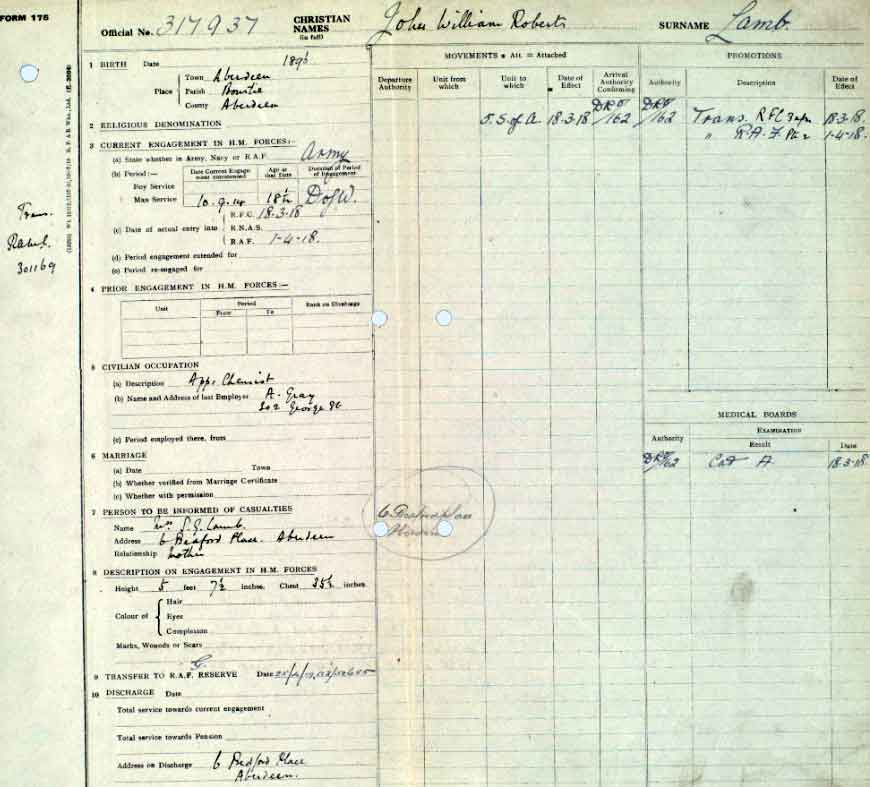 FORM 175
Official No. 317937 CHRISTIAN NAMES (in full) John William Roberts SURNAME Lamb.
1 BIRTH Date 1896
Place Town Aberdeen
Parish
County Aberdeen
2 RELIGIOUS DENOMINATION
3 CURRENT ENGAGEMENT IN H.M. FORCES:-
(a) State whether in Army, Navy or R.A.F. Army
(b) Period:— Date Current Engagement commenced Age at that Date Duration of Period of Engagement
Boy Service
Man Service 10.9.14 18½ D of W.
(c) Date of actual entry into R.F.C. 18-3-18
R.N.A.S.
R.A.F. 1-4-18.
(d) Period engagement extended for
(e) Period re-engaged for
4 PRIOR ENGAGEMENT IN H.M. FORCES:—
Unit Period Rank on Discharge
From To
5 CIVILIAN OCCUPATION
(a) Description App. Chemist
(b) Name and Address of last Employer A. Gray
202 George St
(c) Period employed there, from
6 MARRIAGE
(a) Date Town
(b) Whether verified from Marriage Certificate
(c) Whether with permission
7 PERSON TO BE INFORMED OF CASUALTIES
Name Mrs Lamb.
Address 6 Bedford Place. Aberdeen
Relationship Mother
8 DESCRIPTION ON ENGAGEMENT IN H.M. FORCES
Height 5 feet 7½ inches. Chest 35½ inches.
Colour of Hair
Eyes
Complexion
Marks, Wounds or Scars
9 TRANSFER TO R.A.F. RESERVE Date
G.
10 DISCHARGE Date
Total service towards current engagement
Total service towards Pension
Address on Discharge 6 Bedford Place
Aberdeen.
Tran.
301169
MOVEMENTS Att. = Attached
Departure Authority Unit from which Unit to which Date of Effect Arrival Authority Confirming
S. of A. 18-3-18 DRO/162
6 Bedford Place
Aberdeen
PROMOTIONS
Authority Description Date of Effect
DRO/162 Trans. RFC 18-3-18.
" R.A.F. Pte 2 1-4-18.
MEDICAL BOARDS
Authority EXAMINATION
Result Date
DRO/162 Cat A 18-3-18